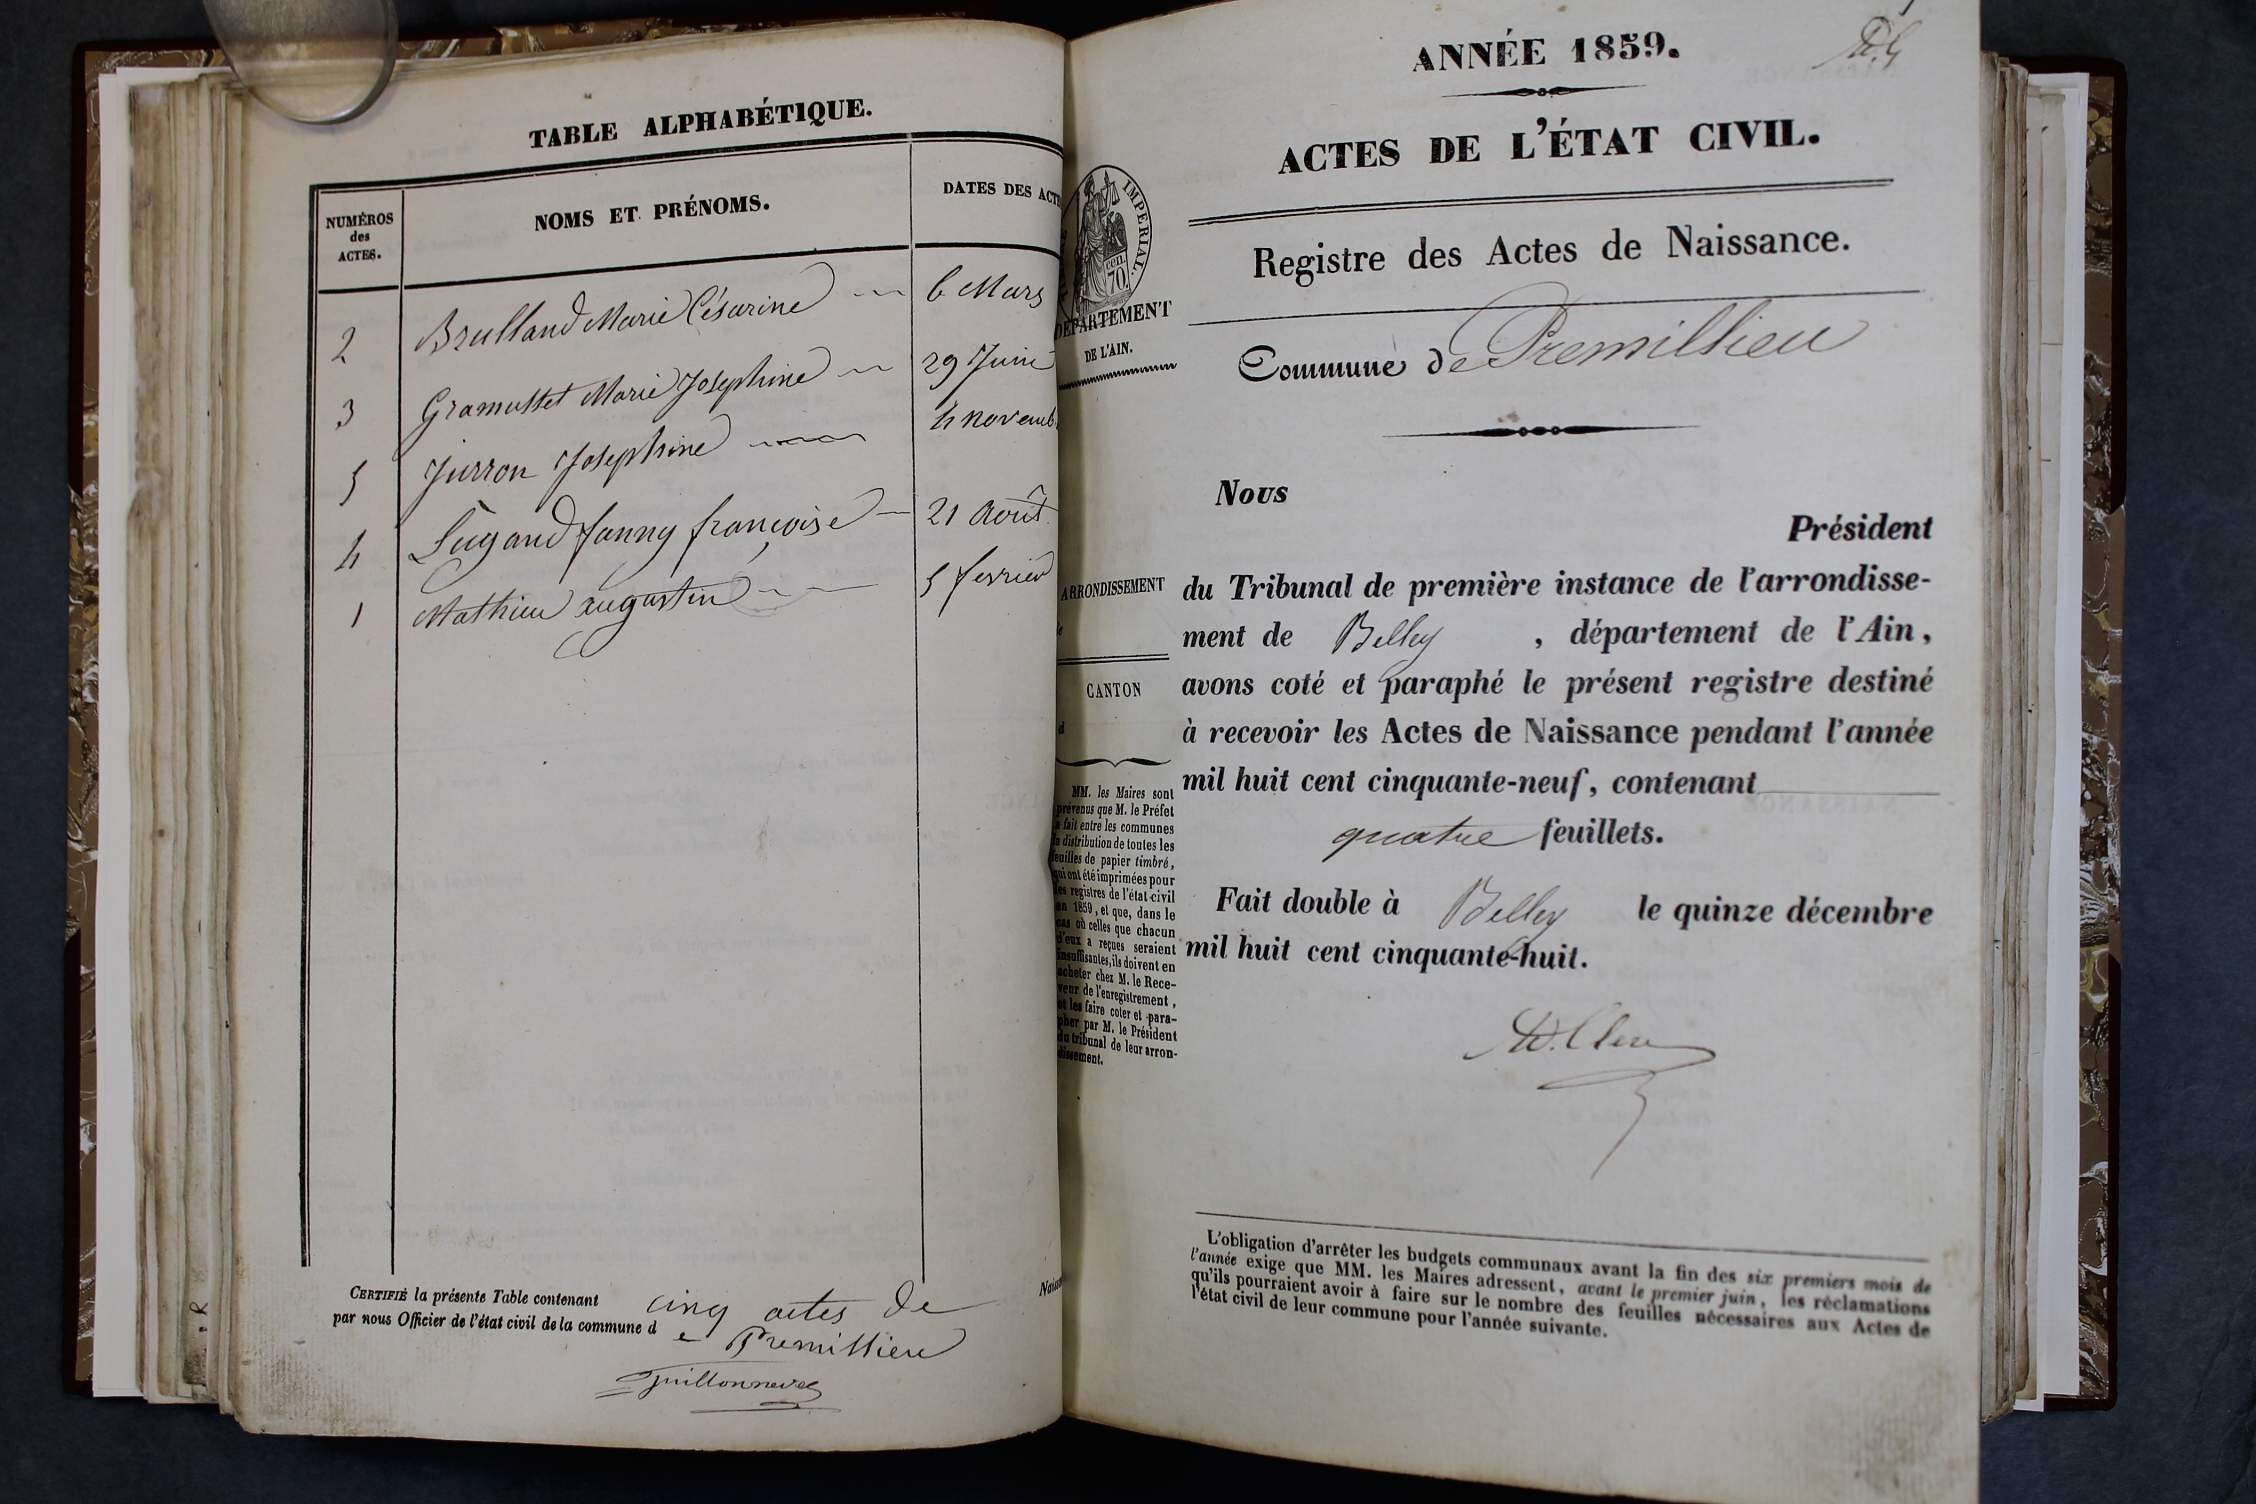 TABLE ALPHABÉTIQUE.
NUMÉROS des ACTES.
NOMS ET PRÉNOMS.
DATES DES ACTE
2 Brulland Marie Césarine 6 Mars
3 Gramusset Marie Josephine 29 Juin
5 Jurron Josephine 4 novemb
4 Lugand fanny françoise 21 Août
1 Mathieu augustin 5 fevrier
CERTIFIÉ la présente Table contenant cinq actes de
par nous Officier de l'état civil de la commune de Premillieu
Naissa
ANNÉE 1859.
ACTES DE L'ÉTAT CIVIL.
IMPERIAL.
70.
cen.
DÉPARTEMENT
DE L'AIN.
Registre des Actes de Naissance.
Commune de Premillieu
ARRONDISSEMENT
CANTON
MM. les Maires sont
prévenus que M. le Préfet
a fait entre les communes
la distribution de toutes les
feuilles de papier timbré,
qui ont été imprimées pour
les registres de l'état civil
en 1859, et que, dans le
cas où celles que chacun
d'eux a reçues seraient
insuffisantes, ils doivent en
acheter chez M. le Rece-
veur de l'enregistrement,
et les faire coter et para-
pher par M. le Président
du tribunal de leur arron-
dissement.
Nous
Président
du Tribunal de première instance de l'arrondisse-
ment de Belley, département de l'Ain,
avons coté et paraphé le présent registre destiné
à recevoir les Actes de Naissance pendant l'année
mil huit cent cinquante-neuf, contenant
quatre feuillets.
Fait double à Belley le quinze décembre
mil huit cent cinquante-huit.
L'obligation d'arrêter les budgets communaux avant la fin des six premiers mois de
l'année exige que MM. les Maires adressent, avant le premier juin, les réclamations
qu'ils pourraient avoir à faire sur le nombre des feuilles nécessaires aux Actes de
l'état civil de leur commune pour l'année suivante.